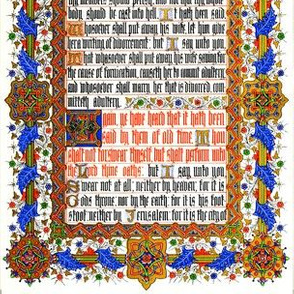 thy members should perish, and not that thy whole
body should be cast into hell. It hath been said
Whosoever shall put away his wife, let him give
her a writing of divorcement: but I say unto you
that whosoever shall put away his wife, saving for
the cause of fornication, causeth her to commit adultery
and whosoever shall marry her that is divorced com
mitteth adultery.
Again, ye have heard that it hath been
said by them of old time Thou
shalt not forswear thyself, but shalt perform unto
the Lord thine oaths: but I say unto you
Swear not at all; neither by heaven; for it is
Gods throne, nor by the earth; for it is his foot
stool; neither by Jerusalem; for it is the city of